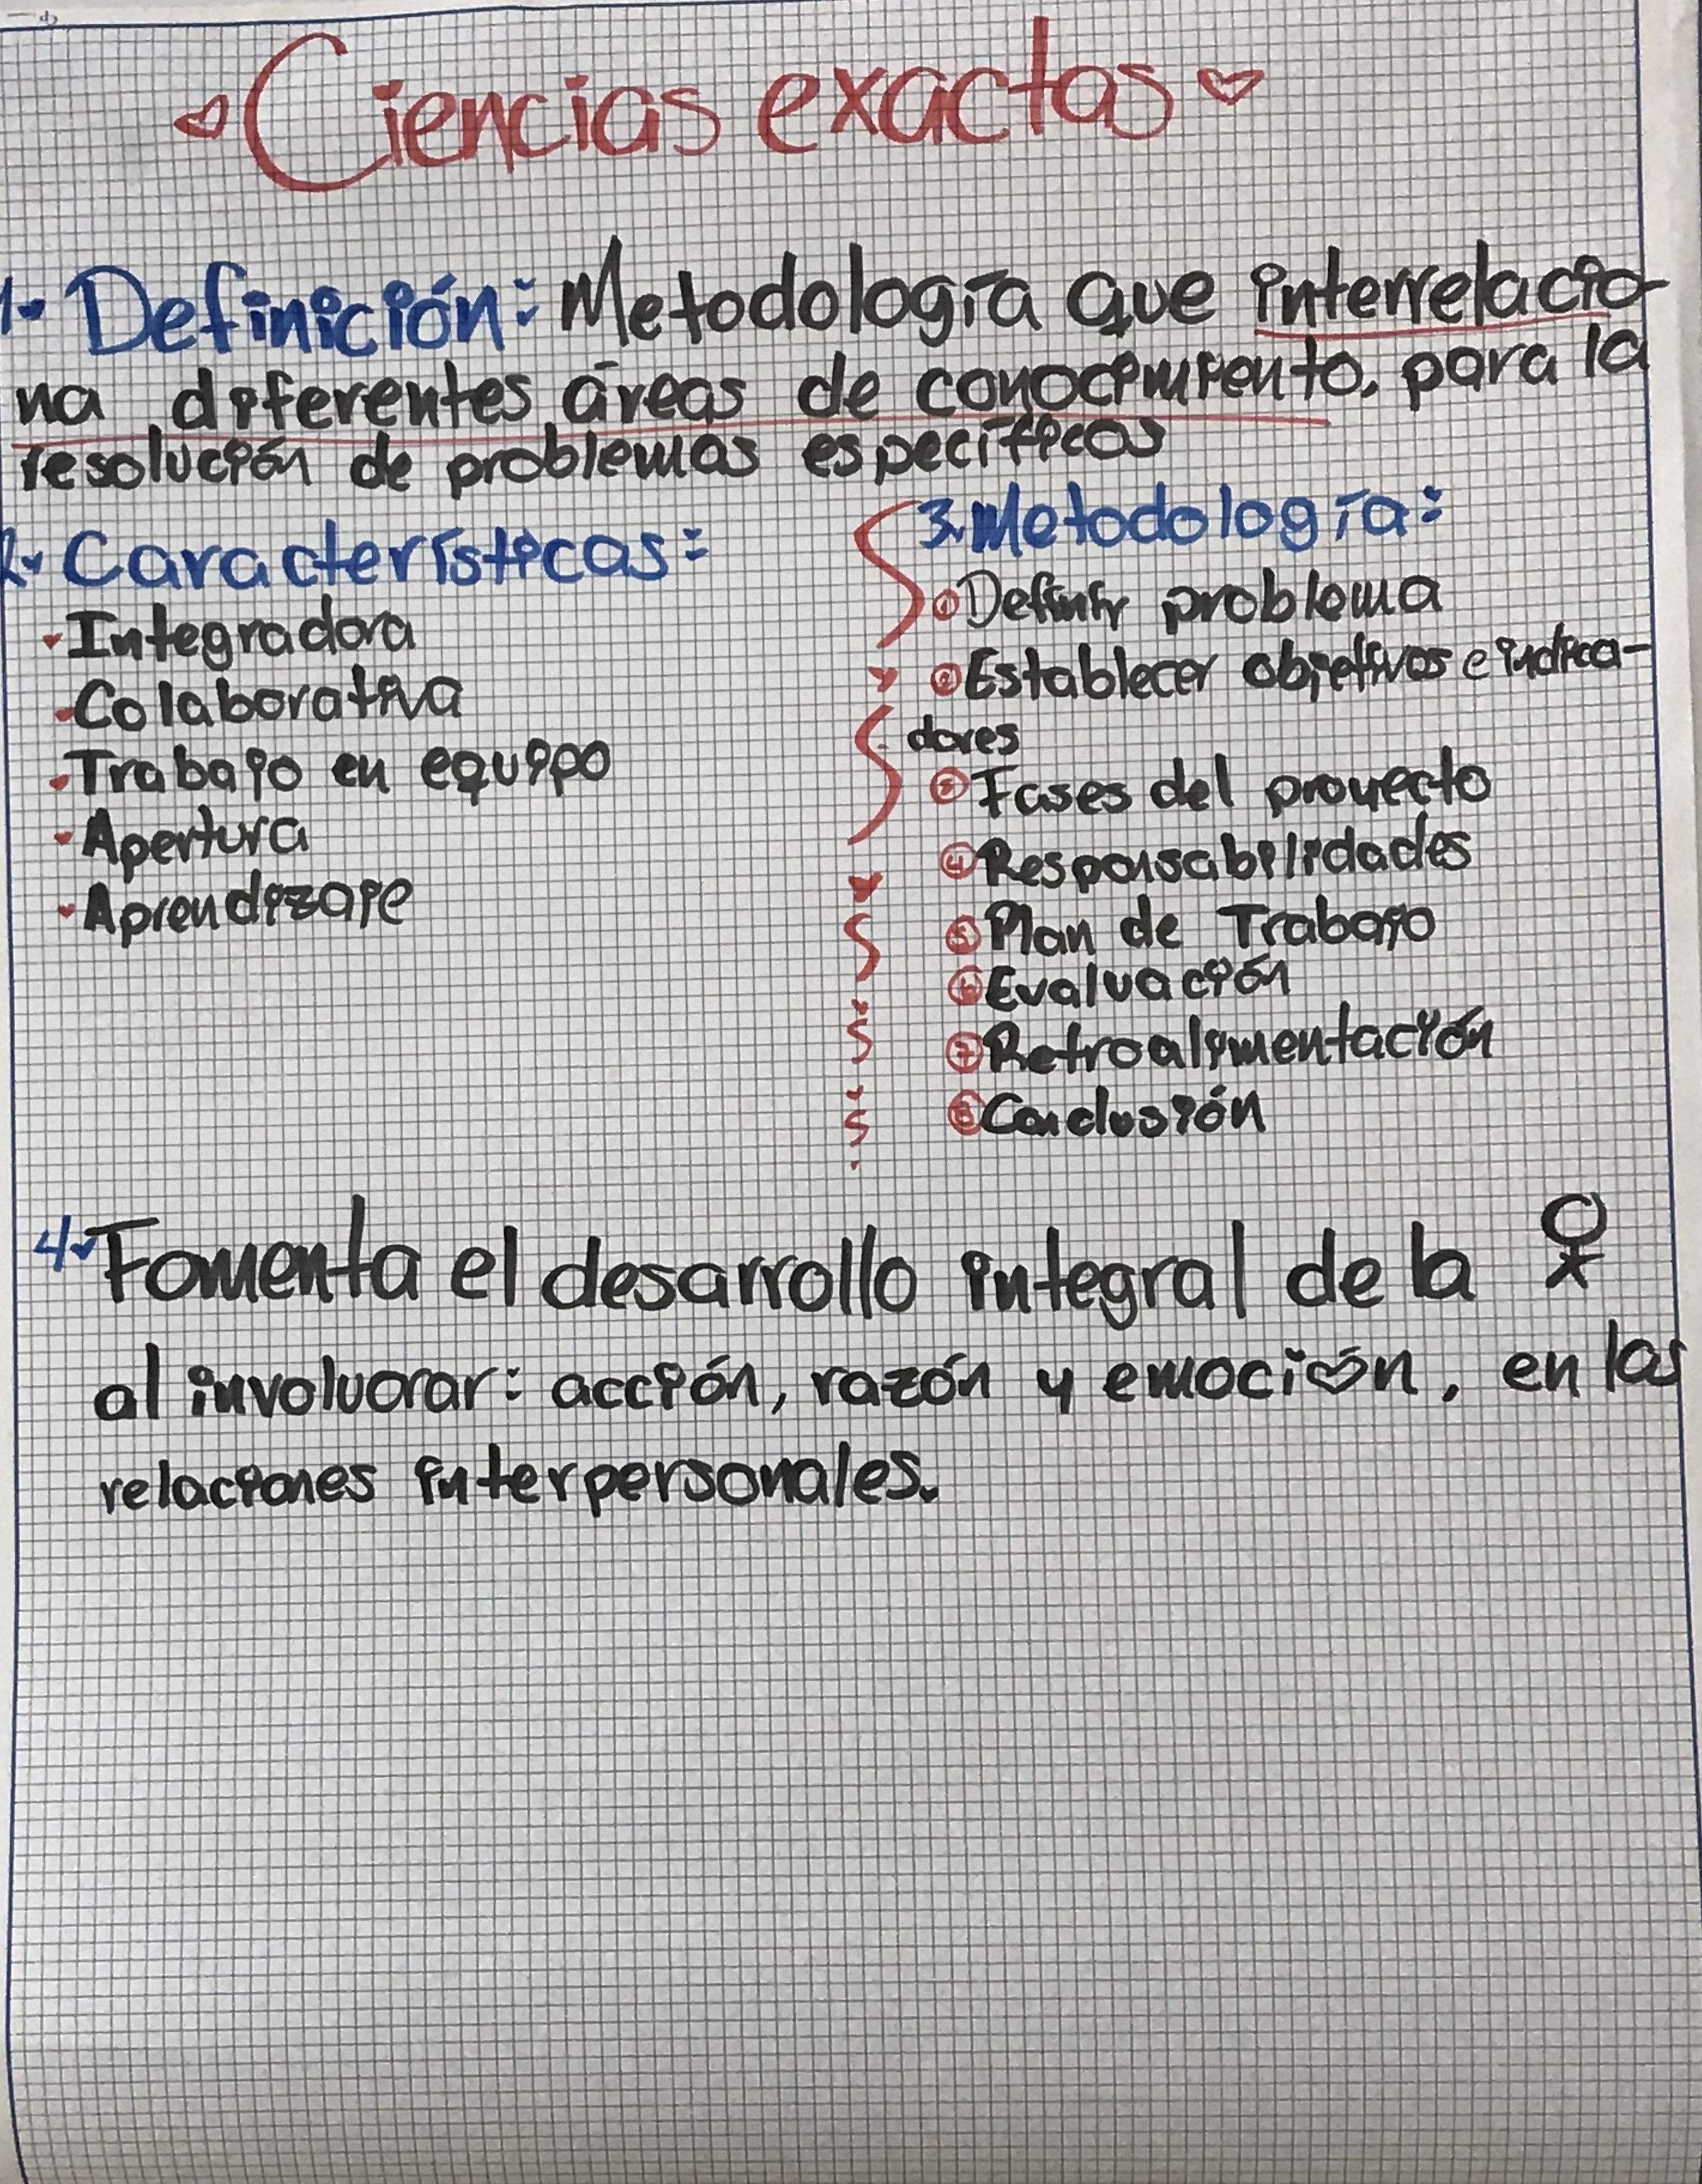 Ciencias exactas
1. Definición: Metodología que interrelacio-
na diferentes áreas de conocimiento, para la
resolución de problemas específicos
2. Características:
Integradora
Colaborativa
Trabajo en equipo
Apertura
Aprendizaje
3. Metodología:
1 Definir problema
2 Establecer objetivos e indica-
dores
3 Fases del proyecto
4 Responsabilidades
5 Plan de Trabajo
6 Evaluación
7 Retroalimentación
8 Conclusión
4. Fomenta el desarrollo integral de la
al involucrar: acción, razón y emoción, en las
relaciones interpersonales.